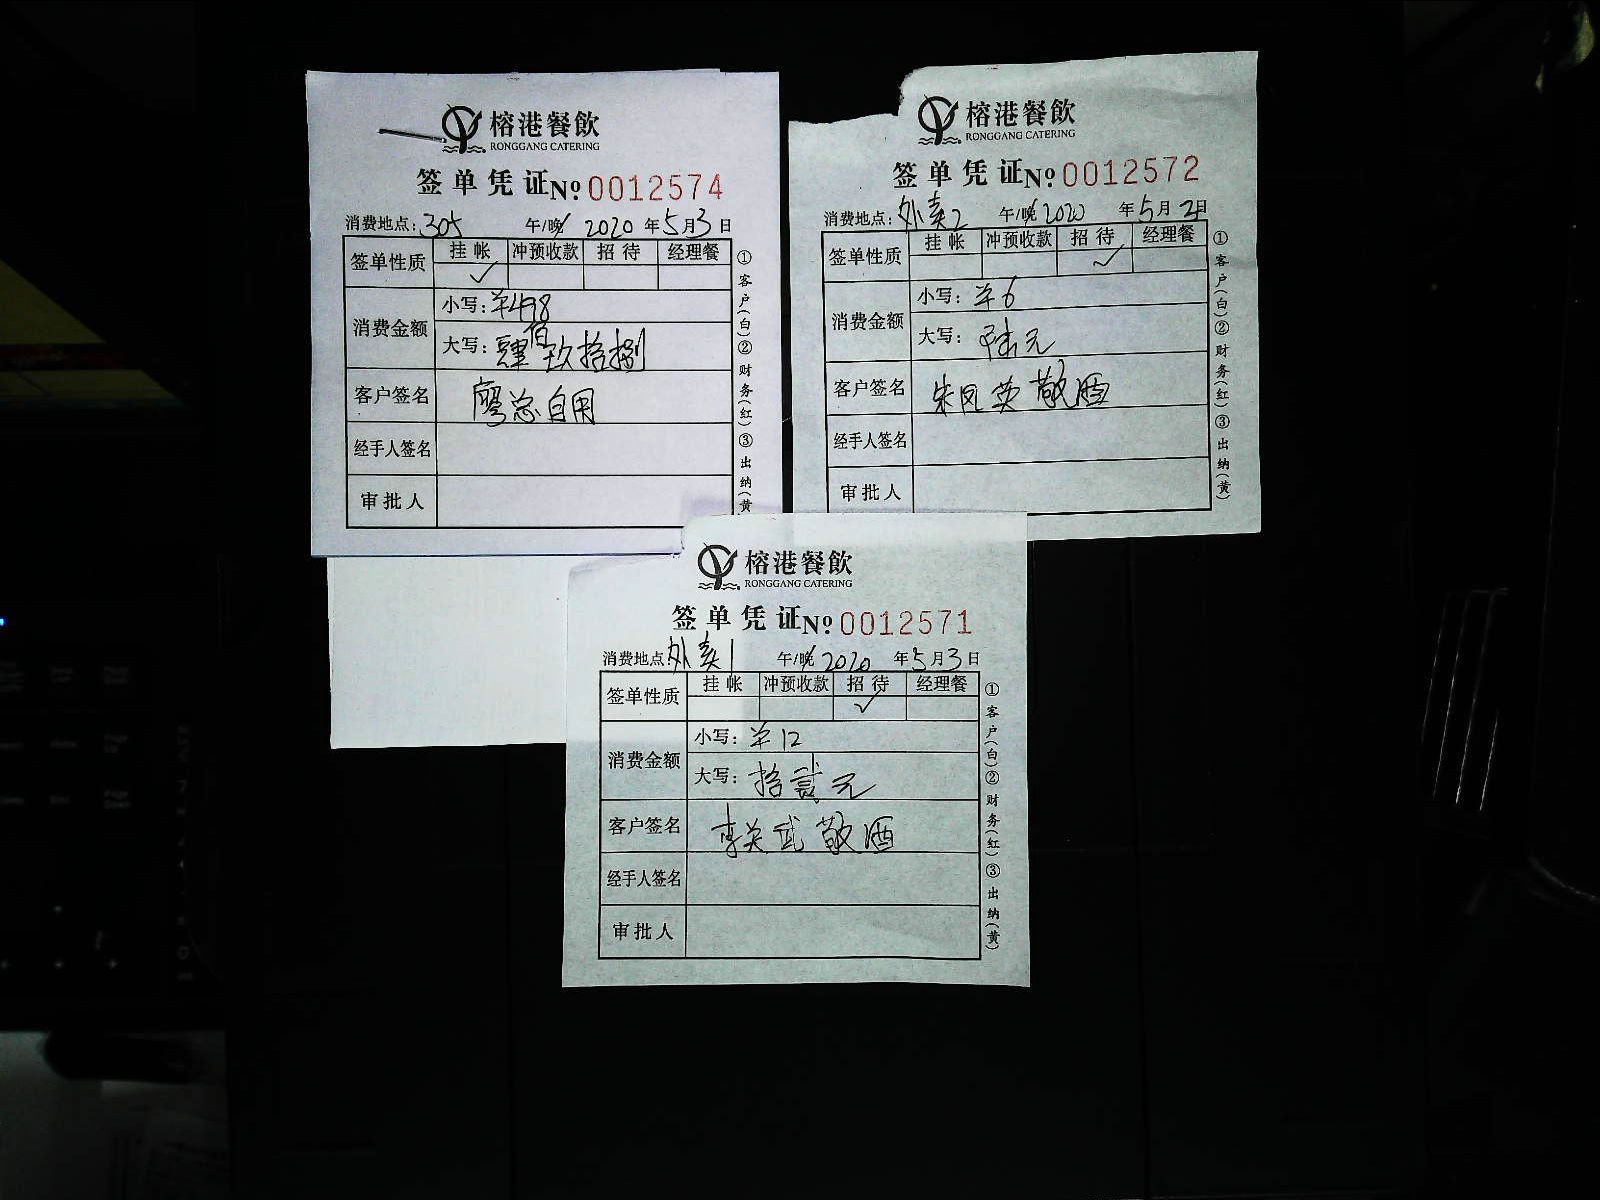 榕港餐飲
RONGGANG CATERING
签单凭证 № 0012574
消费地点: 305 午/晚 2020 年 5 月 3 日
签单性质 挂帐 冲预收款 招待 经理餐
✓
消费金额
小写: ¥498
大写: 肆佰玖拾捌
客户签名 廖总自用
经手人签名
审批人
①客户(白)②财务(红)③出纳(黄
榕港餐飲
RONGGANG CATERING
签单凭证 № 0012572
消费地点: 外卖2 午/晚 2020 年 5 月 3 日
签单性质 挂帐 冲预收款 招待 经理餐
✓
消费金额
小写: ¥6
大写: 陆元
客户签名 朱凤英敬酒
经手人签名
审批人
①客户(白)②财务(红)③出纳(黄)
榕港餐飲
RONGGANG CATERING
签单凭证 № 0012571
消费地点 外卖1 午/晚 2020 年 5 月 3 日
签单性质 挂帐 冲预收款 招待 经理餐
✓
消费金额
小写: ¥12
大写: 拾贰元
客户签名 李关武敬酒
经手人签名
审批人
①客户(白)②财务(红)③出纳(黄)